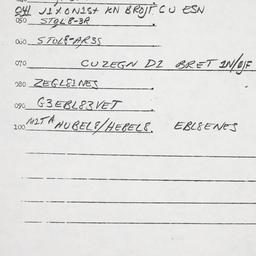 041 J1XON1S+ KN BROJT² CU ESN
050 STQL8-3R
060 STOL8-AR3S
070 CUZEGN D2 BRET 1N/0JF
080 ZEGL81NES
090 G3EBL83VET
100 NUBEL8/HEBEL8. EBL8ENES